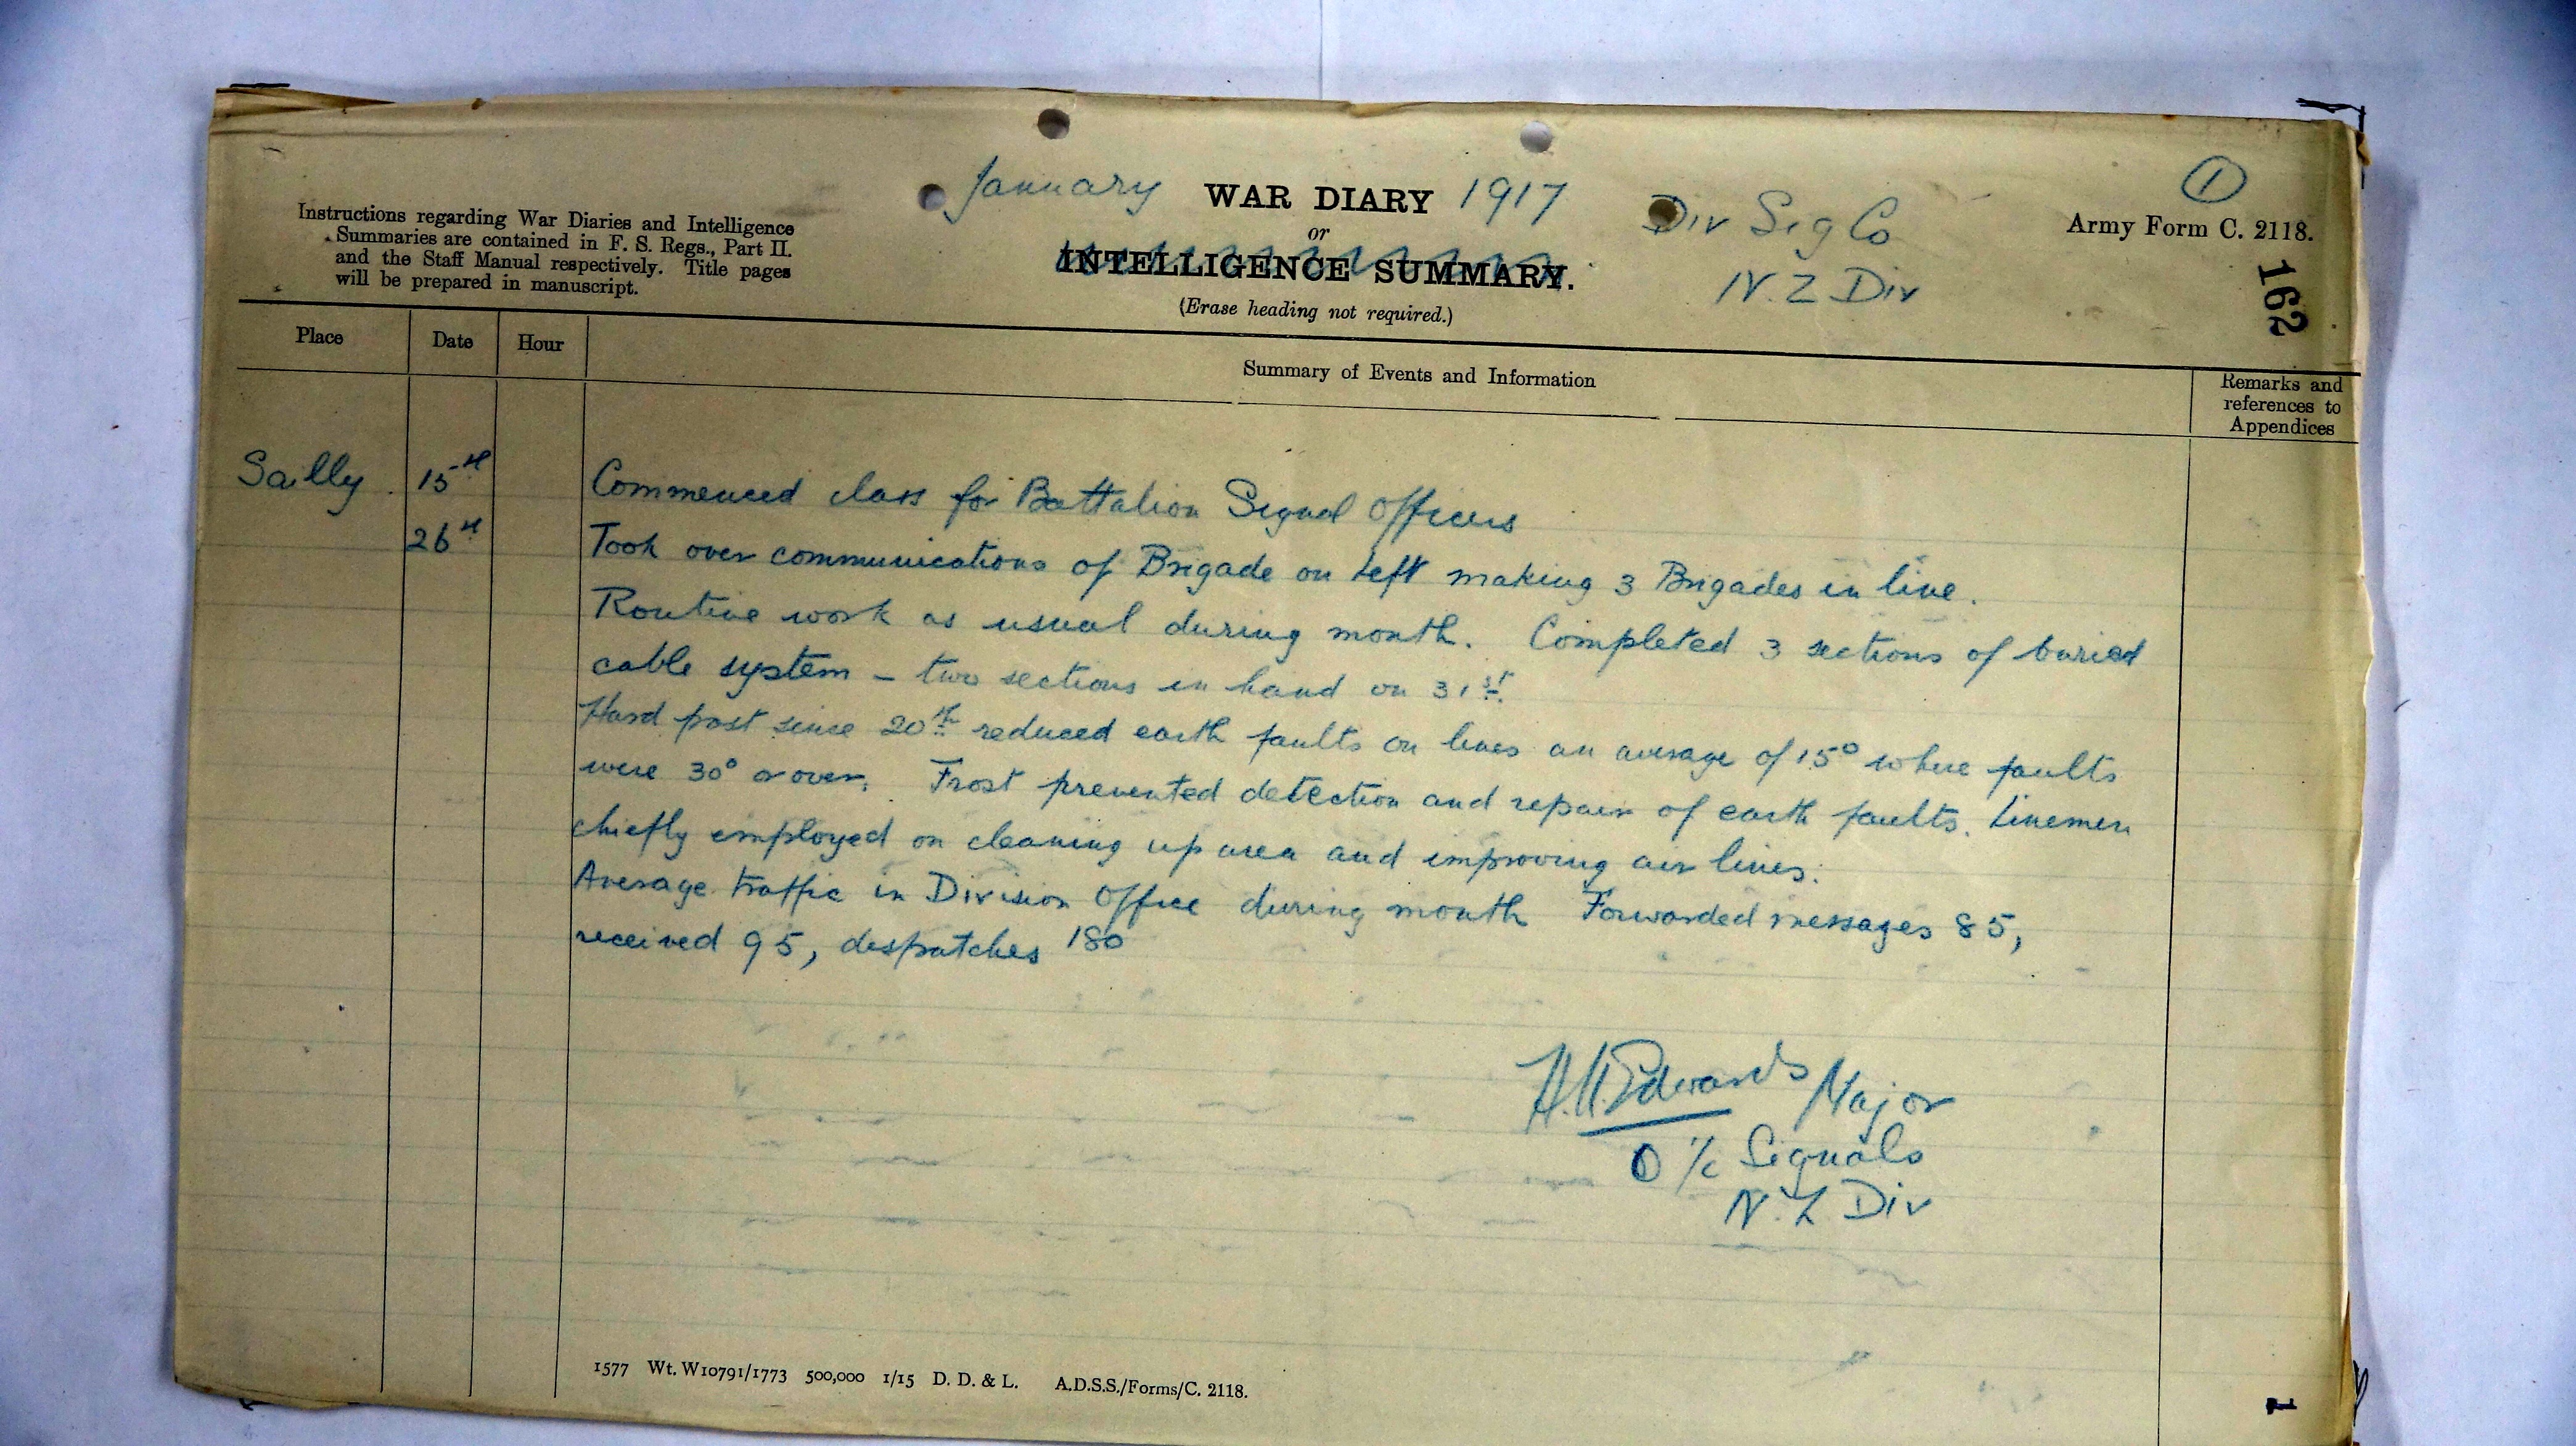 January WAR DIARY 1917
or
INTELLIGENCE SUMMARY.
(Erase heading not required.)
Instructions regarding War Diaries and Intelligence
Summaries are contained in F. S. Regs., Part II.
and the Staff Manual respectively. Title pages
will be prepared in manuscript.
Div Sig Co
N.Z Div
1
Army Form C. 2118.
162
Place Date Hour Summary of Events and Information Remarks and
references to
Appendices
Sailly. 15th Commenced class for Battalion Signal Officers
26th Took over communications of Brigade on Left making 3 Brigades in line.
Routine work as usual during month. Completed 3 sections of buried
cable system - two sections in hand on 31st.
Hard frost since 20th reduced earth faults on lines an average of 15° where faults
were 30° or over. Frost prevented detection and repair of earth faults. Linemen
chiefly employed on cleaning up area and improving air lines.
Average traffic in Division Office during month Forwarded messages 85,
received 95, despatches 180
Edwards Major
O/c Signals
N.Z Div
1577 Wt. W10791/1773 500,000 1/15 D. D. & L. A.D.S.S./Forms/C. 2118.
1